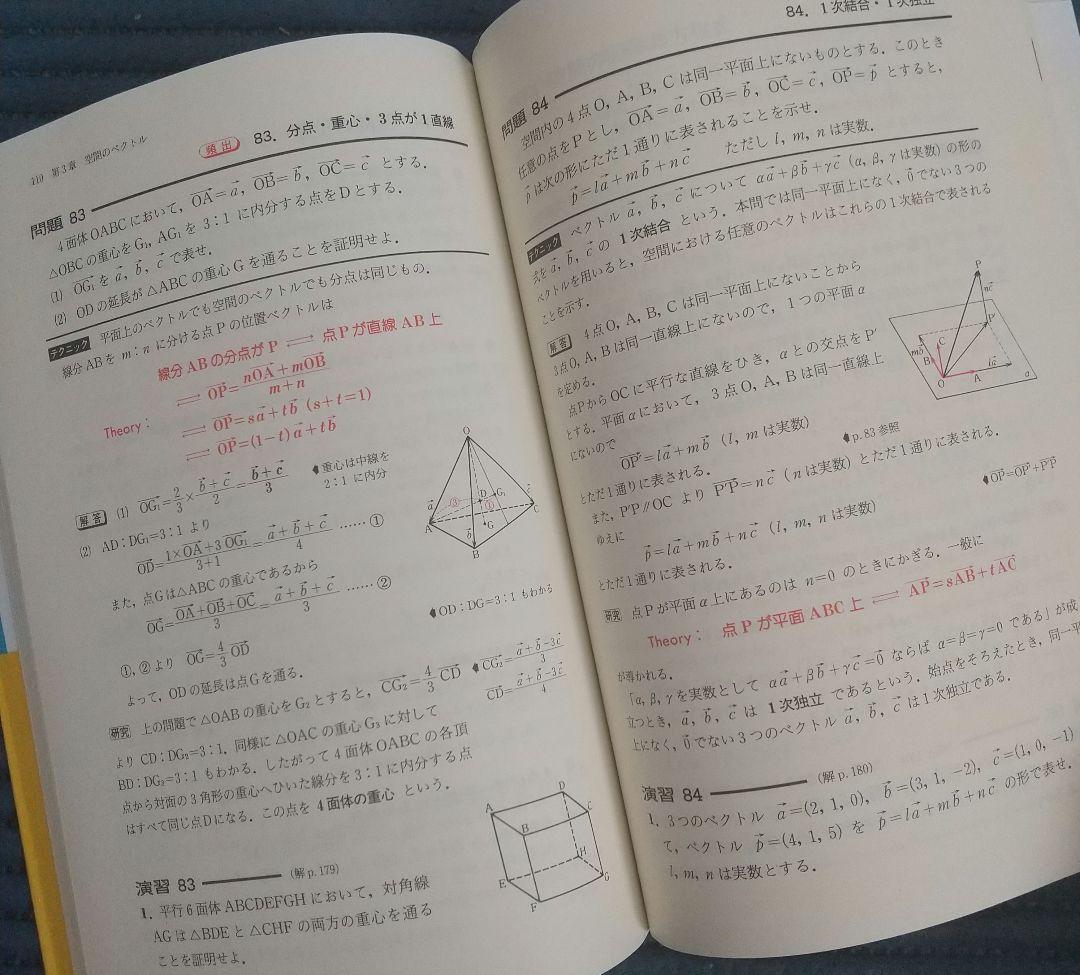 110 第3章 空間のベクトル
頻出 83. 分点・重心・3点が1直線
問題 83
4面体OABCにおいて, OA→=a→, OB→=b→, OC→=c→ とする.
△OBCの重心をG₁, AG₁を3:1に内分する点をDとする.
(1) OG₁→をa→, b→, c→で表せ.
(2) ODの延長が△ABCの重心Gを通ることを証明せよ.
テクニック 平面上のベクトルでも空間のベクトルでも分点は同じもの.
線分ABをm:nに分ける点Pの位置ベクトルは
線分ABの分点がP ⇌ 点Pが直線AB上
⇌ OP→=(nOA→+mOB→)/(m+n)
Theory: ⇌ OP→=sa→+tb→ (s+t=1)
⇌ OP→=(1-t)a→+tb→
解答 (1) OG₁→=2/3×(b→+c→)/2=(b→+c→)/3 ♦重心は中線を
2:1に内分
(2) AD:DG₁=3:1より
OD→=(1×OA→+3OG₁→)/(3+1)=(a→+b→+c→)/4 ……①
また, 点Gは△ABCの重心であるから
OG→=(OA→+OB→+OC→)/3=(a→+b→+c→)/3 ……②
♦OD:DG=3:1もわかる
①, ②より OG→=4/3 OD→
よって, ODの延長は点Gを通る.
研究 上の問題で△OABの重心をG₂とすると, CG₂→=4/3 CD→ ♦CG₂→=(a→+b→-3c→)/3
CD→=(a→+b→-3c→)/4
より CD:DG₂=3:1. 同様に△OACの重心G₃に対して
BD:DG₃=3:1もわかる. したがって4面体OABCの各頂
点から対面の3角形の重心へひいた線分を3:1に内分する点
はすべて同じ点Dになる. この点を4面体の重心という.
O
a→ ③ D G₁ c→
A ① C
b→ G
B
演習 83 (解p.179)
1. 平行6面体ABCDEFGHにおいて, 対角線
AGは△BDEと△CHFの両方の重心を通る
ことを証明せよ.
D
A C
B
H
E G
F
84. 1次結合・1次独立
問題 84
空間内の4点O, A, B, Cは同一平面上にないものとする. このとき
任意の点をPとし, OA→=a→, OB→=b→, OC→=c→, OP→=p→とすると,
p→は次の形にただ1通りに表されることを示せ.
p→=la→+mb→+nc→ ただしl, m, nは実数.
テクニック ベクトルa→, b→, c→についてαa→+βb→+γc→ (α, β, γは実数) の形の
式をa→, b→, c→の1次結合という. 本問では同一平面上になく, 0→でない3つの
ベクトルを用いると, 空間における任意のベクトルはこれらの1次結合で表される
ことを示す.
解答 4点O, A, B, Cは同一平面上にないことから
3点O, A, Bは同一直線上にないので, 1つの平面α
を定める.
点PからOCに平行な直線をひき, αとの交点をP′
とする. 平面αにおいて, 3点O, A, Bは同一直線上
にないので
OP′→=la→+mb→ (l, mは実数) ♦p.83参照
とただ1通りに表される.
また, P′P∥OCより P′P→=nc→ (nは実数) とただ1通りに表される.
ゆえに ♦OP→=OP′→+P′P→
p→=la→+mb→+nc→ (l, m, nは実数)
とただ1通りに表される.
P
nc→
C P′
mb→
B la→
O A α
研究 点Pが平面α上にあるのはn=0のときにかぎる. 一般に
Theory: 点Pが平面ABC上 ⇌ AP→=sAB→+tAC→
が導かれる.
「α, β, γを実数として αa→+βb→+γc→=0→ ならばα=β=γ=0である」が成
立つとき, a→, b→, c→は1次独立であるという. 始点をそろえたとき, 同一平
上になく, 0→でない3つのベクトルa→, b→, c→は1次独立である.
演習 84 (解p.180)
1. 3つのベクトルa→=(2, 1, 0), b→=(3, 1, -2), c→=(1, 0, -1)
て, ベクトルp→=(4, 1, 5)をp→=la→+mb→+nc→の形で表せ.
l, m, nは実数とする.